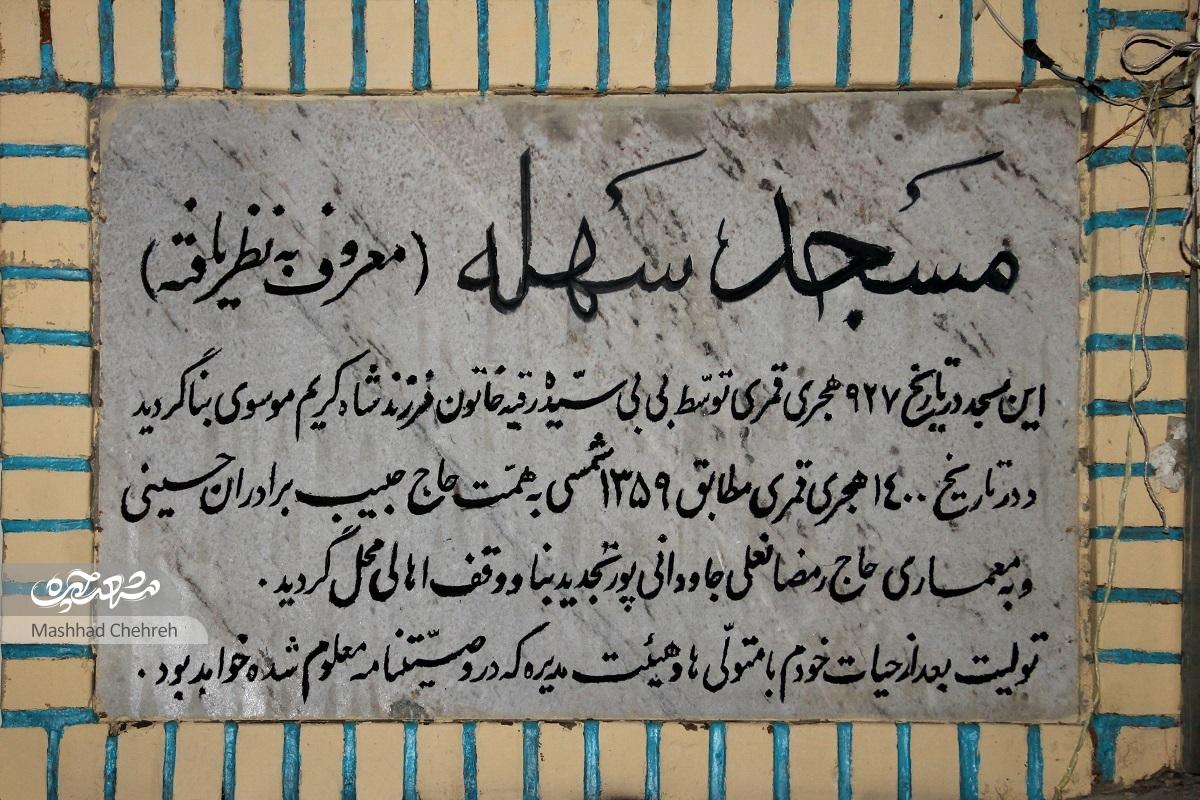 مسجد سهله (معروف به نظریافته)
این مسجد در تاریخ ۹۲۷ هجری قمری توسّط بی بی سیّده رقیه خاتون فرزند شاه کریم موسوی بنا گردید
و در تاریخ ۱۴۰۰ هجری قمری مطابق ۱۳۵۹ شمسی به همّت حاج حبیب برادران حسینی
و به معماری حاج رمضانعلی جاودانی پور تجدید بنا و وقف اهالی محل گردید .
تولیت بعد از حیات خودم با متولّی ها و هیئت مدیره که در وصیّتنامه معلوم شده خواهد بود .
مشهد چهره
Mashhad Chehreh